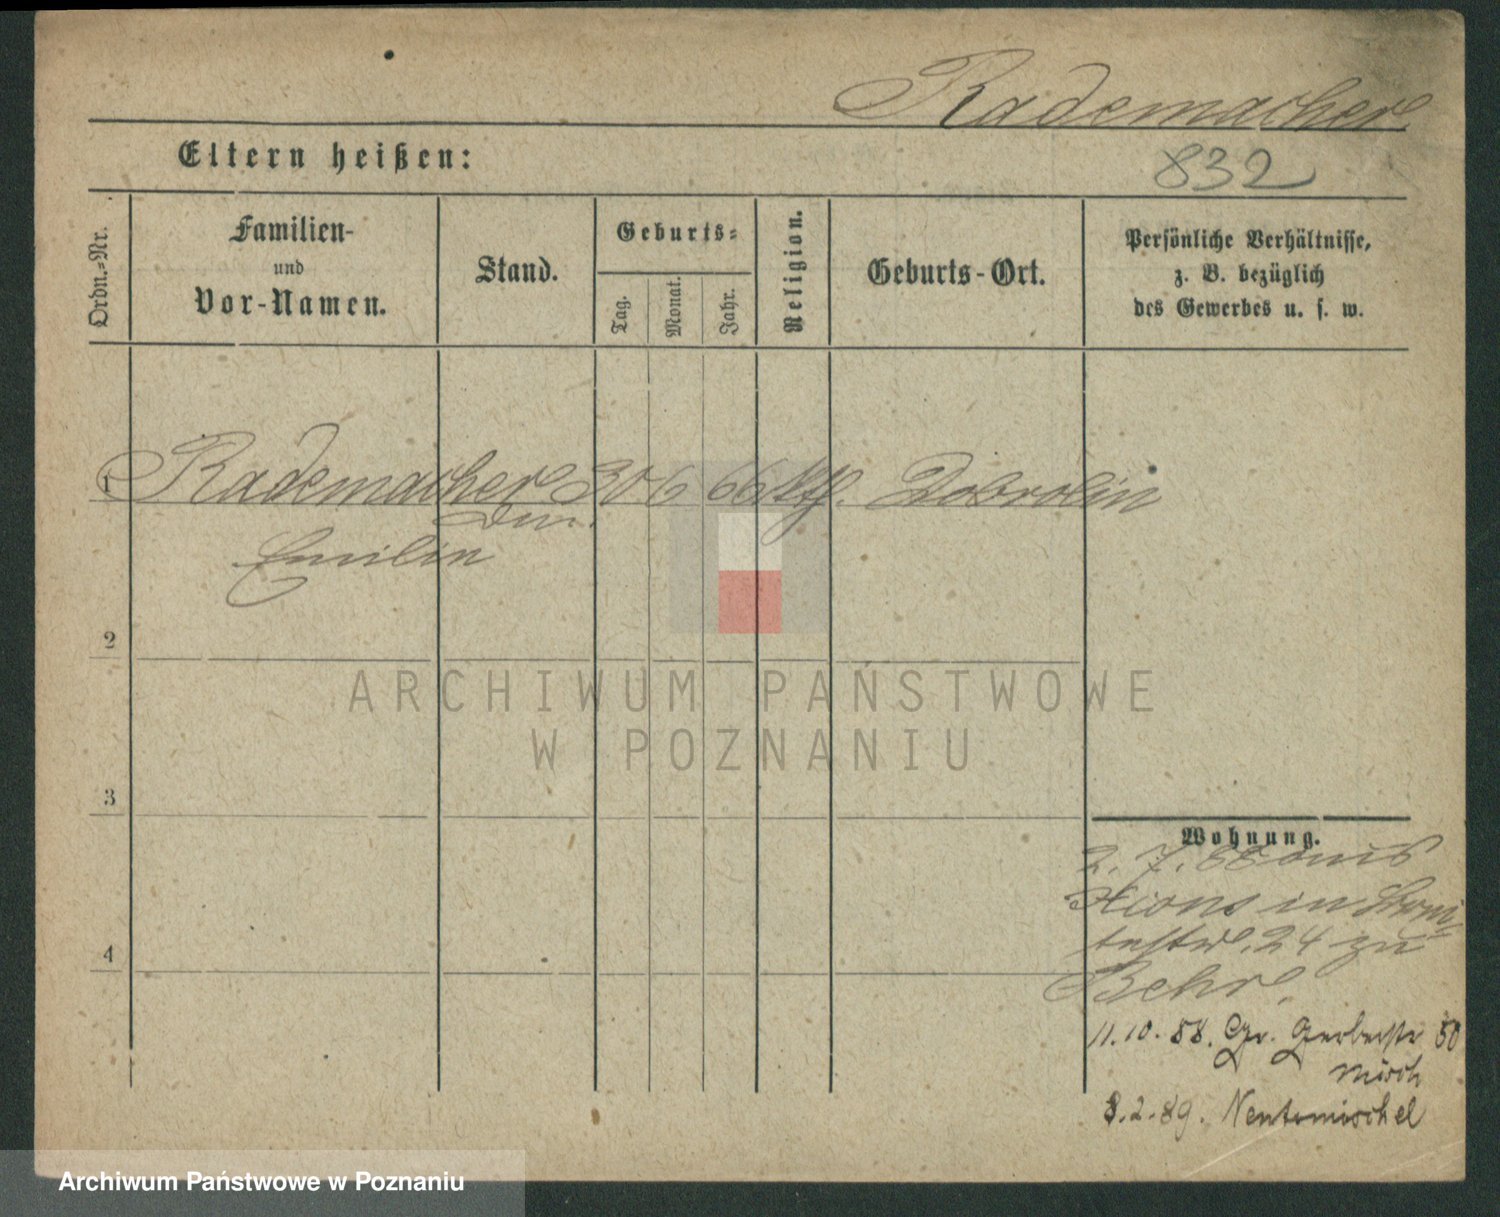 Rademacher
Eltern heißen:
832
Ordn.-Nr.
Familien-
und
Vor-Namen.
Stand.
Geburts-
Tag.
Monat.
Jahr.
Religion.
Geburts-Ort.
Persönliche Verhältnisse,
z. B. bezüglich
des Gewerbes u. s. w.
1 Rademacher 30 6 66 ktf. Dobrolin
Emilin
2
ARCHIWUM PAŃSTWOWE
W POZNANIU
3
Wohnung.
2. 7. 88 aus
Xions in
24 zu
Behr.
4
11. 10. 88. Gr. Gerberstr 50
Misch
8. 2. 89. Neutomischel
Archiwum Państwowe w Poznaniu